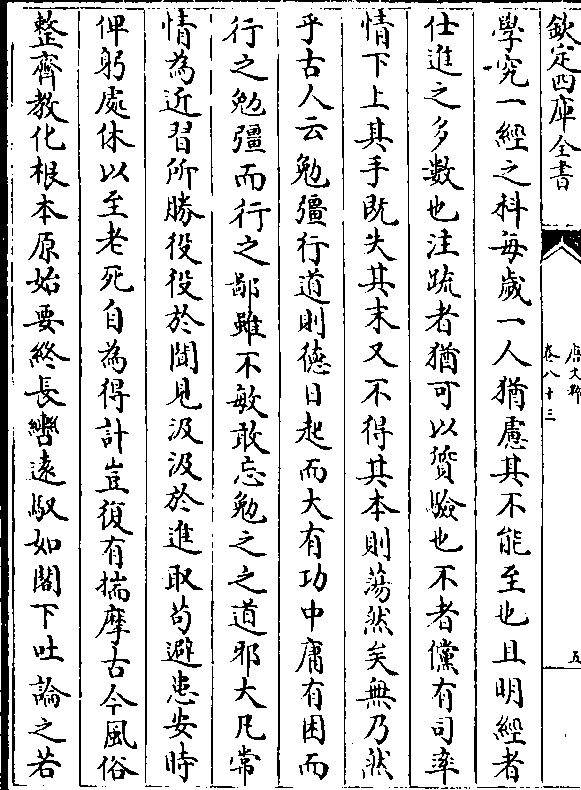 欽定四庫全書
唐文粹
卷八十三
五
學究一經之科每歲一人猶慮其不能至也且明經者
仕進之多數也注疏者猶可以質驗也不者儻有司率
情下上其手既失其末又不得其本則蕩然矣無乃然
乎古人云勉彊行道則德日起而大有功中庸有困而
行之勉彊而行之鄙雖不敏敢忘勉之之道邪大凡常
情為近習所勝役役於聞見汲汲於進取苟避患安時
俾躬處休以至老死自為得計豈復有揣摩古今風俗
整齊教化根本原始要終長轡遠馭如閣下吐論之若